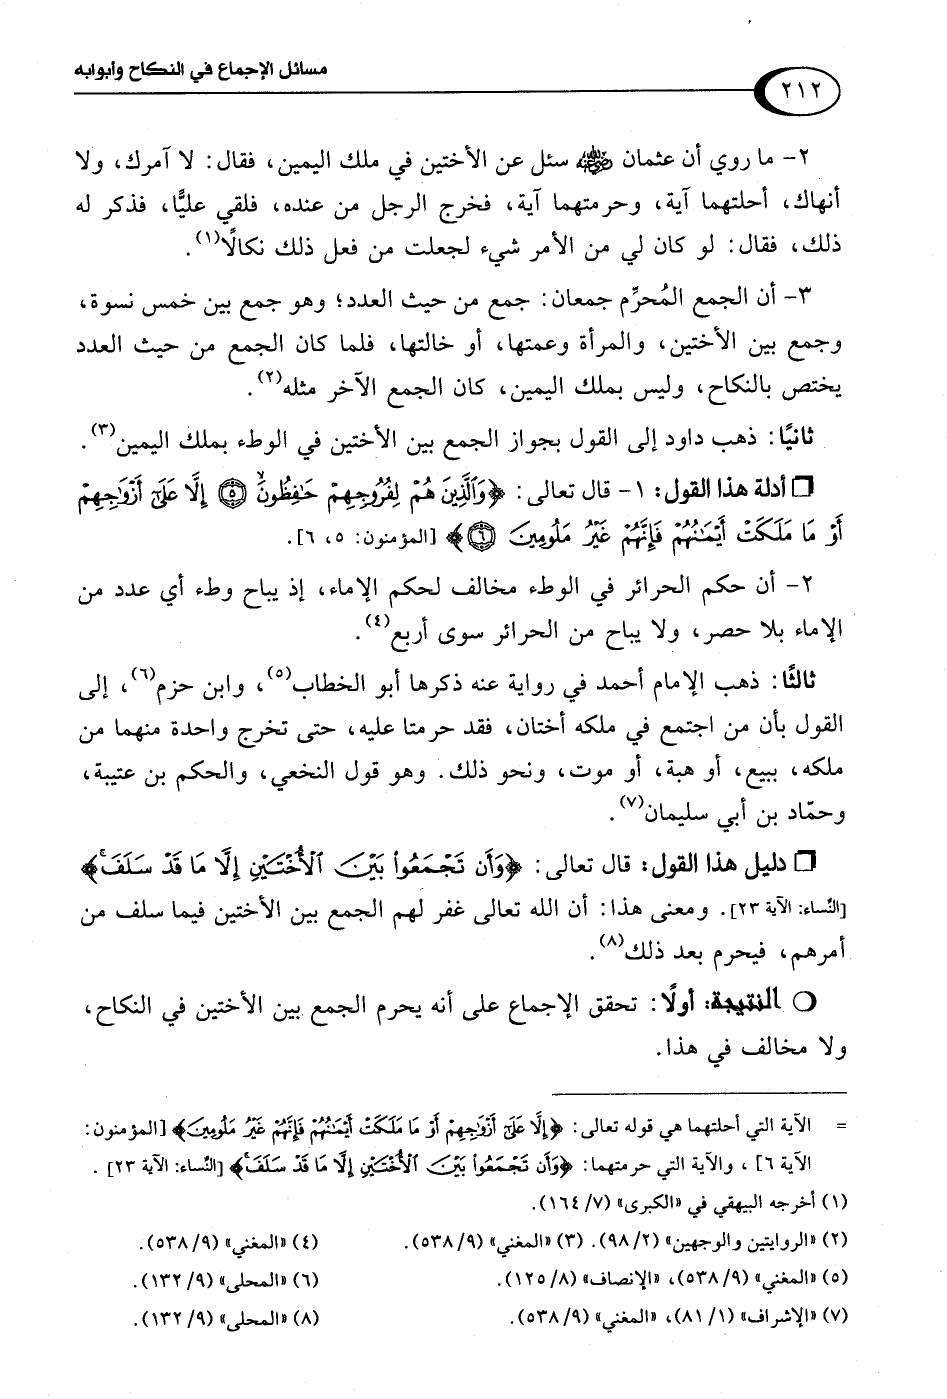 مسائل الإجماع في النكاح وأبوابه
٢١٢
٢- ما روي أن عثمان رضي الله عنه سئل عن الأختين في ملك اليمين، فقال: لا آمرك، ولا
أنهاك، أحلتهما آية، وحرمتهما آية، فخرج الرجل من عنده، فلقي عليًّا، فذكر له
ذلك، فقال: لو كان لي من الأمر شيء لجعلت من فعل ذلك نكالًا(١).
٣- أن الجمع المُحرَّم جمعان: جمع من حيث العدد؛ وهو جمع بين خمس نسوة،
وجمع بين الأختين، والمرأة وعمتها، أو خالتها، فلما كان الجمع من حيث العدد
يختص بالنكاح، وليس بملك اليمين، كان الجمع الآخر مثله(٢).
ثانيًا: ذهب داود إلى القول بجواز الجمع بين الأختين في الوطء بملك اليمين(٣).
❑ أدلة هذا القول: ١- قال تعالى: ﴿وَٱلَّذِينَ هُمۡ لِفُرُوجِهِمۡ حَـٰفِظُونَۙ ٥ إِلَّا عَلَىٰٓ أَزۡوَٰجِهِمۡ
أَوۡ مَا مَلَكَتۡ أَيۡمَـٰنُهُمۡ فَإِنَّهُمۡ غَيۡرُ مَلُومِينَ ٦﴾ [المؤمنون: ٥، ٦].
٢- أن حكم الحرائر في الوطء مخالف لحكم الإماء، إذ يباح وطء أي عدد من
الإماء بلا حصر، ولا يباح من الحرائر سوى أربع(٤).
ثالثًا: ذهب الإمام أحمد في رواية عنه ذكرها أبو الخطاب(٥)، وابن حزم(٦)، إلى
القول بأن من اجتمع في ملكه أختان، فقد حرمتا عليه، حتى تخرج واحدة منهما من
ملكه، ببيع، أو هبة، أو موت، ونحو ذلك. وهو قول النخعي، والحكم بن عتيبة،
وحمّاد بن أبي سليمان(٧).
❑ دليل هذا القول: قال تعالى: ﴿وَأَن تَجۡمَعُواْ بَيۡنَ ٱلۡأُخۡتَيۡنِ إِلَّا مَا قَدۡ سَلَفَۚ﴾
[النِّساء: الآية ٢٣]. ومعنى هذا: أن الله تعالى غفر لهم الجمع بين الأختين فيما سلف من
أمرهم، فيحرم بعد ذلك(٨).
❍ النتيجة: أولًا: تحقق الإجماع على أنه يحرم الجمع بين الأختين في النكاح،
ولا مخالف في هذا.
= الآية التي أحلتهما هي قوله تعالى: ﴿إِلَّا عَلَىٰٓ أَزۡوَٰجِهِمۡ أَوۡ مَا مَلَكَتۡ أَيۡمَـٰنُهُمۡ فَإِنَّهُمۡ غَيۡرُ مَلُومِينَ﴾ [المؤمنون:
الآية ٦]، والآية التي حرمتهما: ﴿وَأَن تَجۡمَعُواْ بَيۡنَ ٱلۡأُخۡتَيۡنِ إِلَّا مَا قَدۡ سَلَفَۚ﴾ [النِّساء: الآية ٢٣].
(١) أخرجه البيهقي في «الكبرى» (٧/ ١٦٤).
(٢) «الروايتين والوجهين» (٢/ ٩٨). (٣) «المغني» (٩/ ٥٣٨). (٤) «المغني» (٩/ ٥٣٨).
(٥) «المغني» (٩/ ٥٣٨)، «الإنصاف» (٨/ ١٢٥). (٦) «المحلى» (٩/ ١٣٢).
(٧) «الإشراف» (١/ ٨١)، «المغني» (٩/ ٥٣٨). (٨) «المحلى» (٩/ ١٣٢).